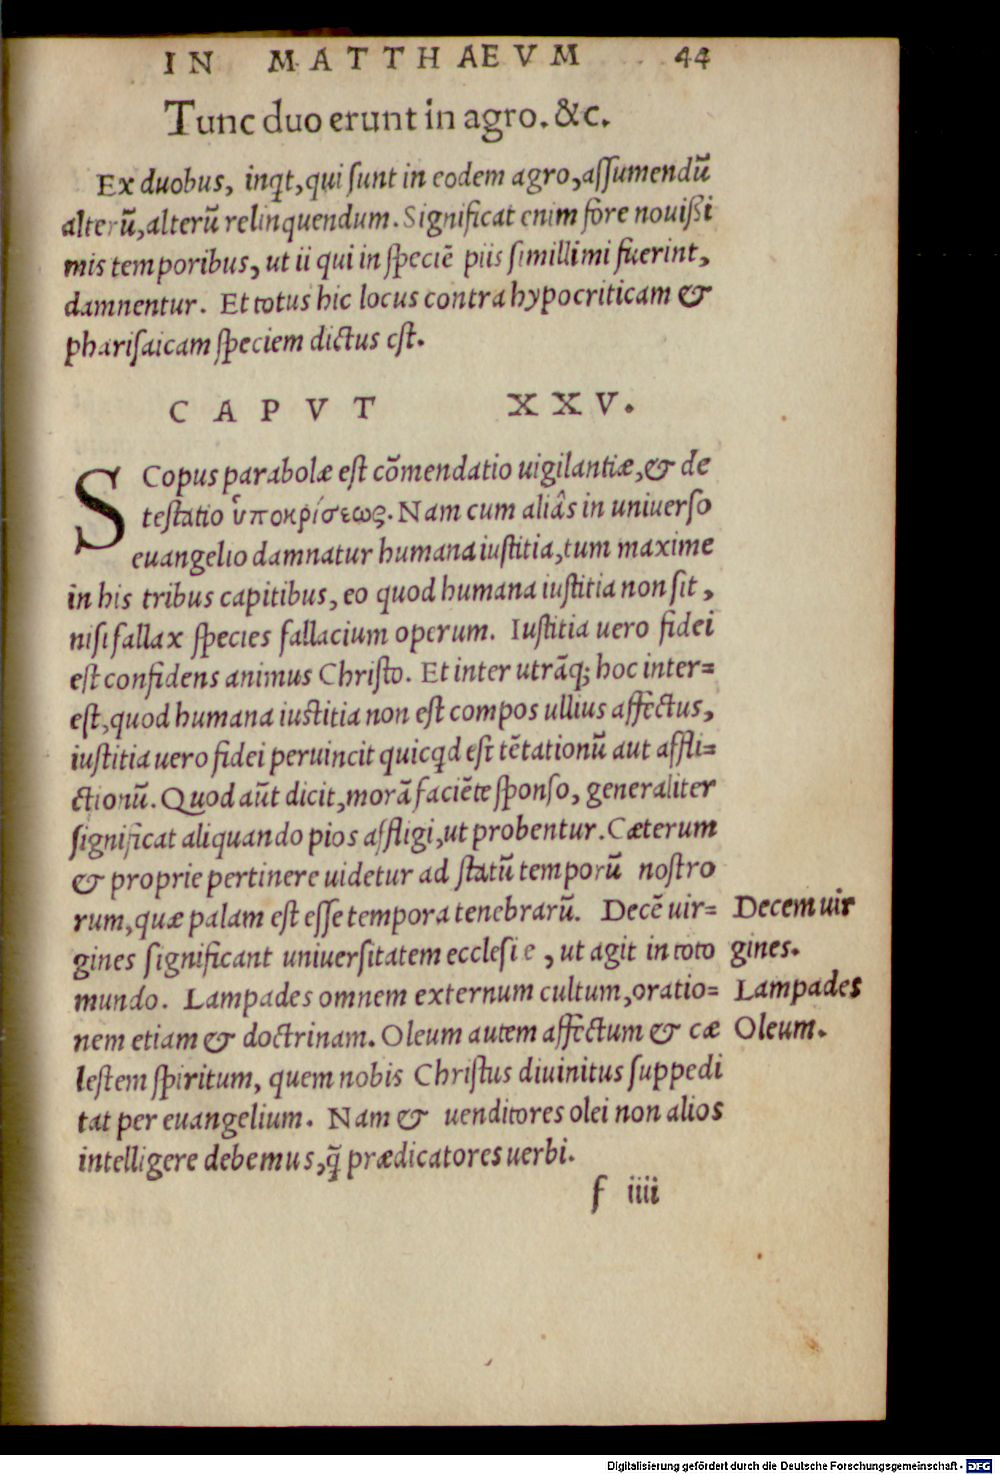 IN MATTHAEVM 44
Tunc duo erunt in agro. &c.
Ex duobus, inqt, qui ſunt in eodem agro, aſſumendū
alterū, alterū relinquendum. Significat enim fore nouißi
mis temporibus, ut ii qui in ſpeciē piis ſimillimi fuerint,
damnentur. Et totus hic locus contra hypocriticam &
phariſaicam ſpeciem dictus eſt.
CAPVT XXV.
SCopus parabolæ eſt cōmendatio uigilantiæ, & de
teſtatio ὑποκρίσεως. Nam cum aliâs in uniuerſo
euangelio damnatur humana iuſtitia, tum maxime
in his tribus capitibus, eo quod humana iuſtitia non ſit,
niſi fallax ſpecies fallacium operum. Iuſtitia uero fidei
eſt confidens animus Chriſto. Et inter utrāq; hoc inter=
eſt, quod humana iuſtitia non eſt compos ullius affectus,
iuſtitia uero fidei peruincit quicqd eſt tētationū aut affli=
ctionū. Quod aūt dicit, morā faciēte ſponſo, generaliter
ſignificat aliquando pios affligi, ut probentur. Cæterum
& proprie pertinere uidetur ad ſtatū temporū noſtro
rum, quæ palam eſt eſſe tempora tenebrarū. Decē uir=
gines ſignificant uniuerſitatem eccleſie, ut agit in toto
mundo. Lampades omnem externum cultum, oratio=
nem etiam & doctrinam. Oleum autem affectum & cæ
leſtem ſpiritum, quem nobis Chriſtus diuinitus ſuppedi
tat per euangelium. Nam & uenditores olei non alios
intelligere debemus, q̄ prædicatores uerbi.
f iiii
Decem uir
gines.
Lampades
Oleum.
Digitalisierung gefördert durch die Deutsche Forschungsgemeinschaft - DFG